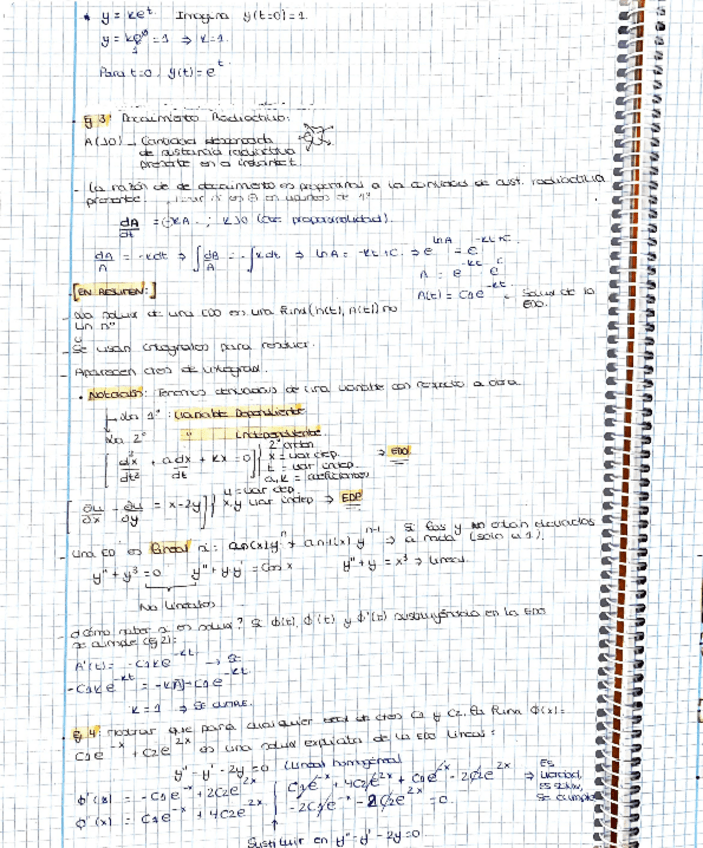 • y = ke^t. Imagina y(t=0)=1
y = ke^0 = 1 ⇒ k=1.
Para t=0, y(t)=e^t
Ej 3: Decaimiento Radioactivo:
A(>0) → Cantidad
de sustancia radiactiva
presente en el instante t.
- La razón de de decaimiento es proporcional a la cantidad de sust. radioactiva
presente.
dA/dt = -kA ; k>0 (cte proporcionalidad).
dA/A = -kdt ⇒ ∫dA/A = -∫kdt ⇒ lnA = -kt+C ⇒ e^lnA = e^-kt+C
A = e^-kt e^C
A(t) = C1e^-kt → Soluc de la
EDO.
[EN RESUMEN:]
- La soluc de una EDO es una func (n(t), A(t)) no
un nº
- Se usan integrales para resolver.
- Aparecen ctes de integrac.
• Notación: Tenemos derivadas de una variable con respecto a otra
La 1ª: Variable Dependiente
La 2ª " Independiente
[d²x/dt² + a dx/dt + kx = 0] 2º orden
x = var dep.
t = var indep.
a, k = coeficientes
⇒ EDO
[∂u/∂x - ∂u/∂y = x-2y] u = var dep
x, y var indep ⇒ EDP
- Una ED es lineal si: an(x)y^n + an-1(x)y^n-1 ⇒ Si las y no están elevadas
a nada (solo a 1).
y'' + y³ = 0 y'' + yy' = cos x y'' + y = x³ → Lineal.
No lineales
¿Cómo saber si es soluc? Si ϕ(t), ϕ'(t) y ϕ''(t) sustituyéndola en la EDO
se cumple (Ej 2):
A'(t) = -C1ke^-kt → Si
-C1ke^-kt = -k C1e^-kt
k = 1 ⇒ Se cumple.
Ej 4: Mostrar que para cualquier de ctes C1 y C2, la func ϕ(x) =
C1e^-x + C2e^2x es una soluc explícita de la EDO Lineal:
y'' - y' - 2y = 0 (Lineal homogénea)
ϕ'(x) = -C1e^-x + 2C2e^2x
ϕ''(x) = C1e^-x + 4C2e^2x
C1e^-x + 4C2e^2x + C1e^-x - 2C2e^2x
-2C1e^-x - 2C2e^2x = 0
⇒ Es
verdad,
es soluc,
se cumple
↑
Sustituir en y'' - y' - 2y = 0